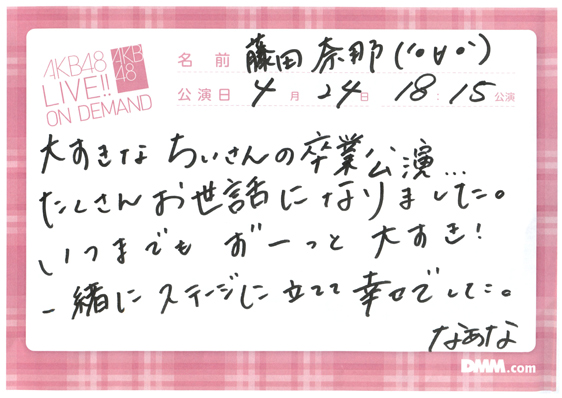 AKB48
LIVE!!
ON DEMAND
AKB
48
名前 藤田奈那(*'∀'*)
公演日 4月24日 18:15公演
大すきな ちぃさんの卒業公演...
たくさんお世話になりました。
いつまでも ずーっと 大すき!
一緒に ステージに立てて幸せでした。
なぁな
DMM.com